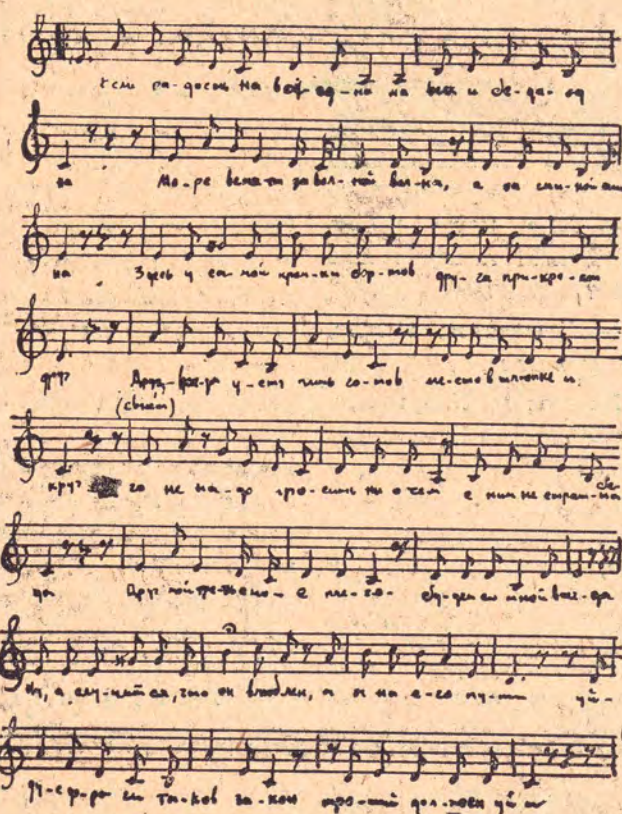 Если ра-дость на всех од-на на всех и бе-да од
на Мо-ре встает за вол-ной вол-на, а за спи-ной спи
на Здесь у са-мой кром-ки бор-тов дру-га при-кро-ет
друг Друг все-гда у-сту-пить го-тов мес-то в шлюпке и
(сбыт)
круг го не на-до про-сить ни о чем с ним не страш-на бе
да Друг мой тре-тье мо-е пле-чо- бу-дет со мной все-гда
Ну, а слу-чится, что он влюблен, а я на е-го пу-ти уй-
ду с до-ро-ги та-ков за-кон тре-тий дол-жен уй ти